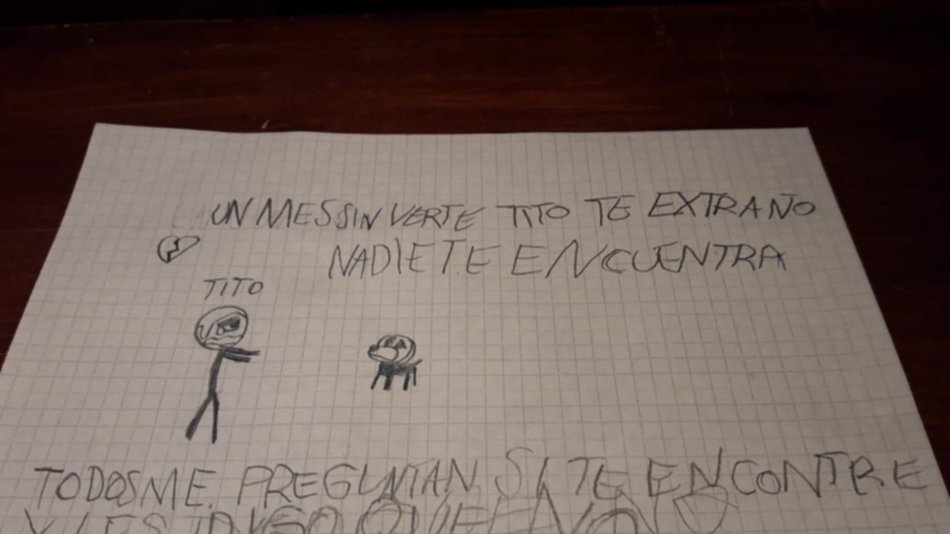 UN MES SIN VERTE TITO TE EXTRAÑO
NADIE TE ENCUENTRA
TITO
TODOS ME PREGUNTAN SI TE ENCONTRE
Y LES DIGO QUE